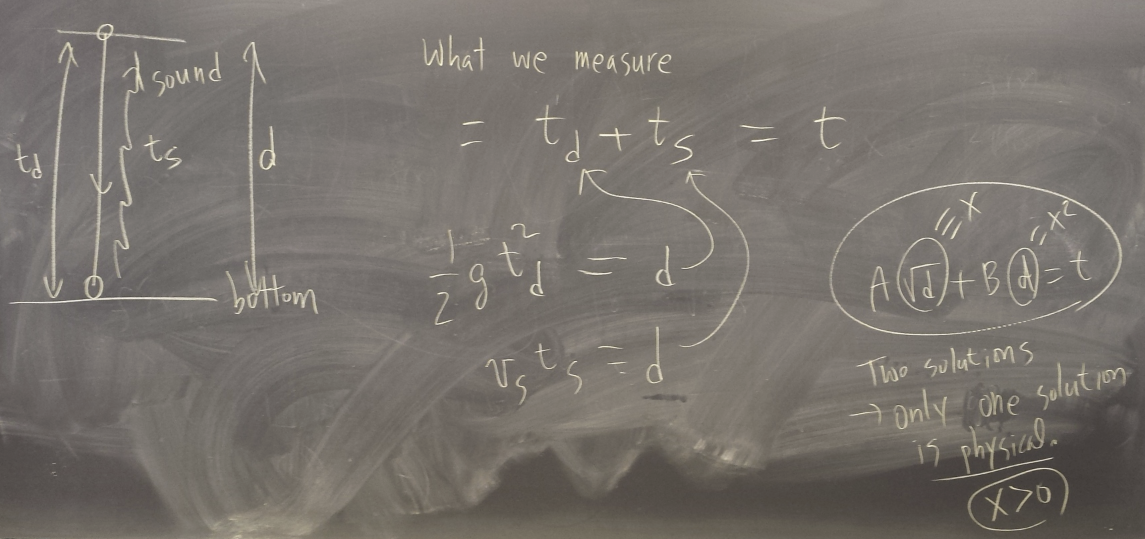 sound
t_d
t_s
d
bottom
What we measure
= t_d + t_s = t
1/2 g t_d^2 = d
v_s t_s = d
= x
= x^2
A √d + B d = t
Two solutions
→ only one solution
is physical.
x > 0